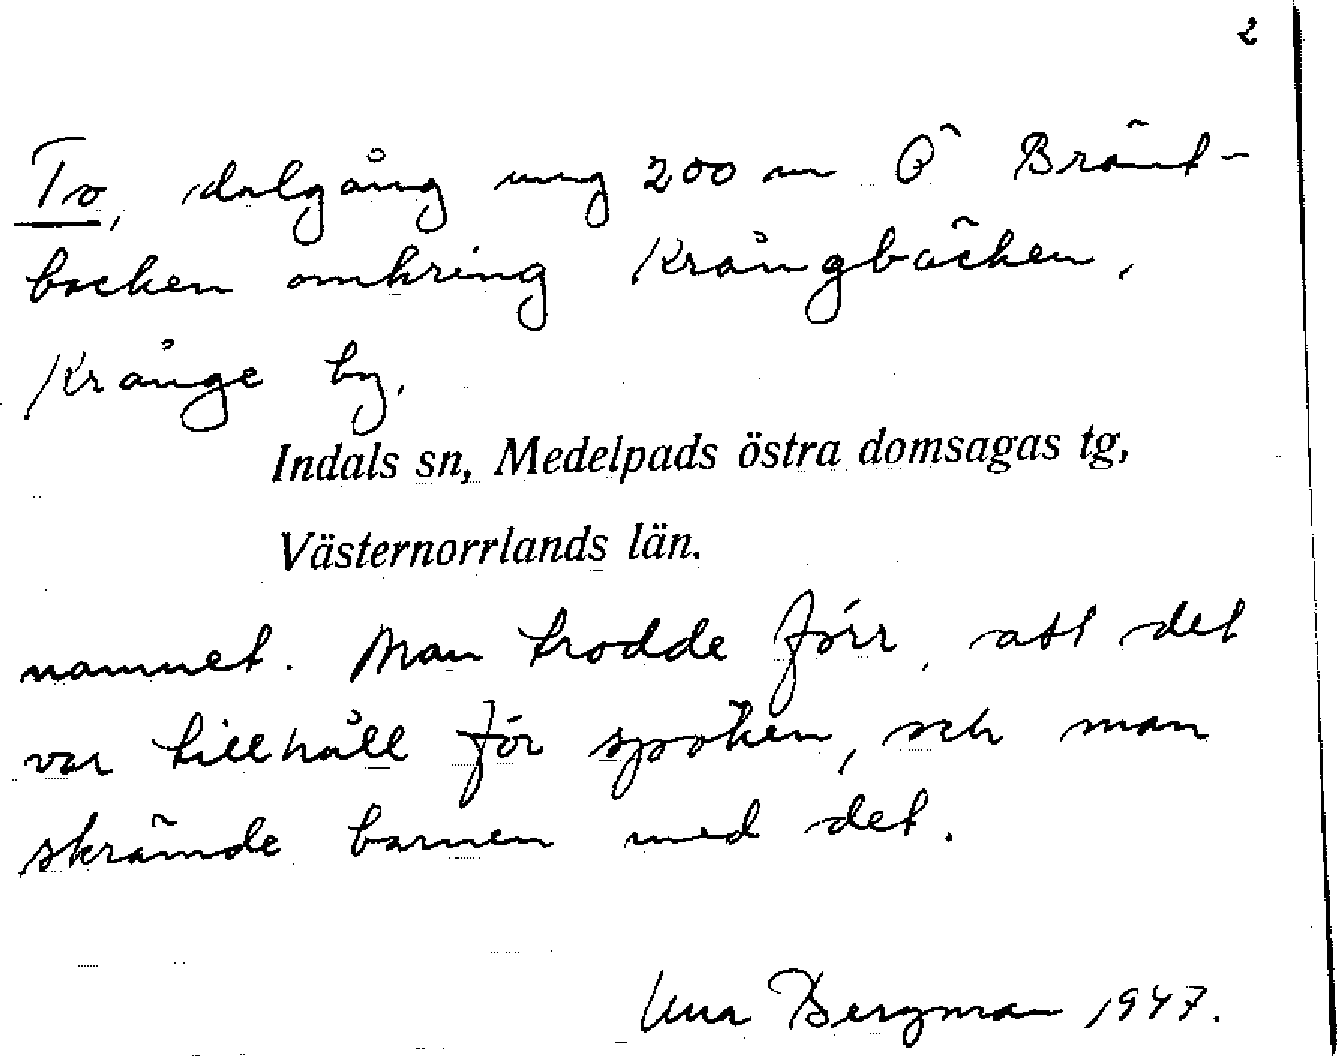 2
To, dalgång ung 200 m Ö Bränt-
backen omkring Krångbäcken,
Krånge by.
Indals sn, Medelpads östra domsagas tg,
Västernorrlands län.
namnet. Man trodde förr, att det
var tillhåll för spöken, och man
skrämde barnen med det.
Una Bergman 1947.